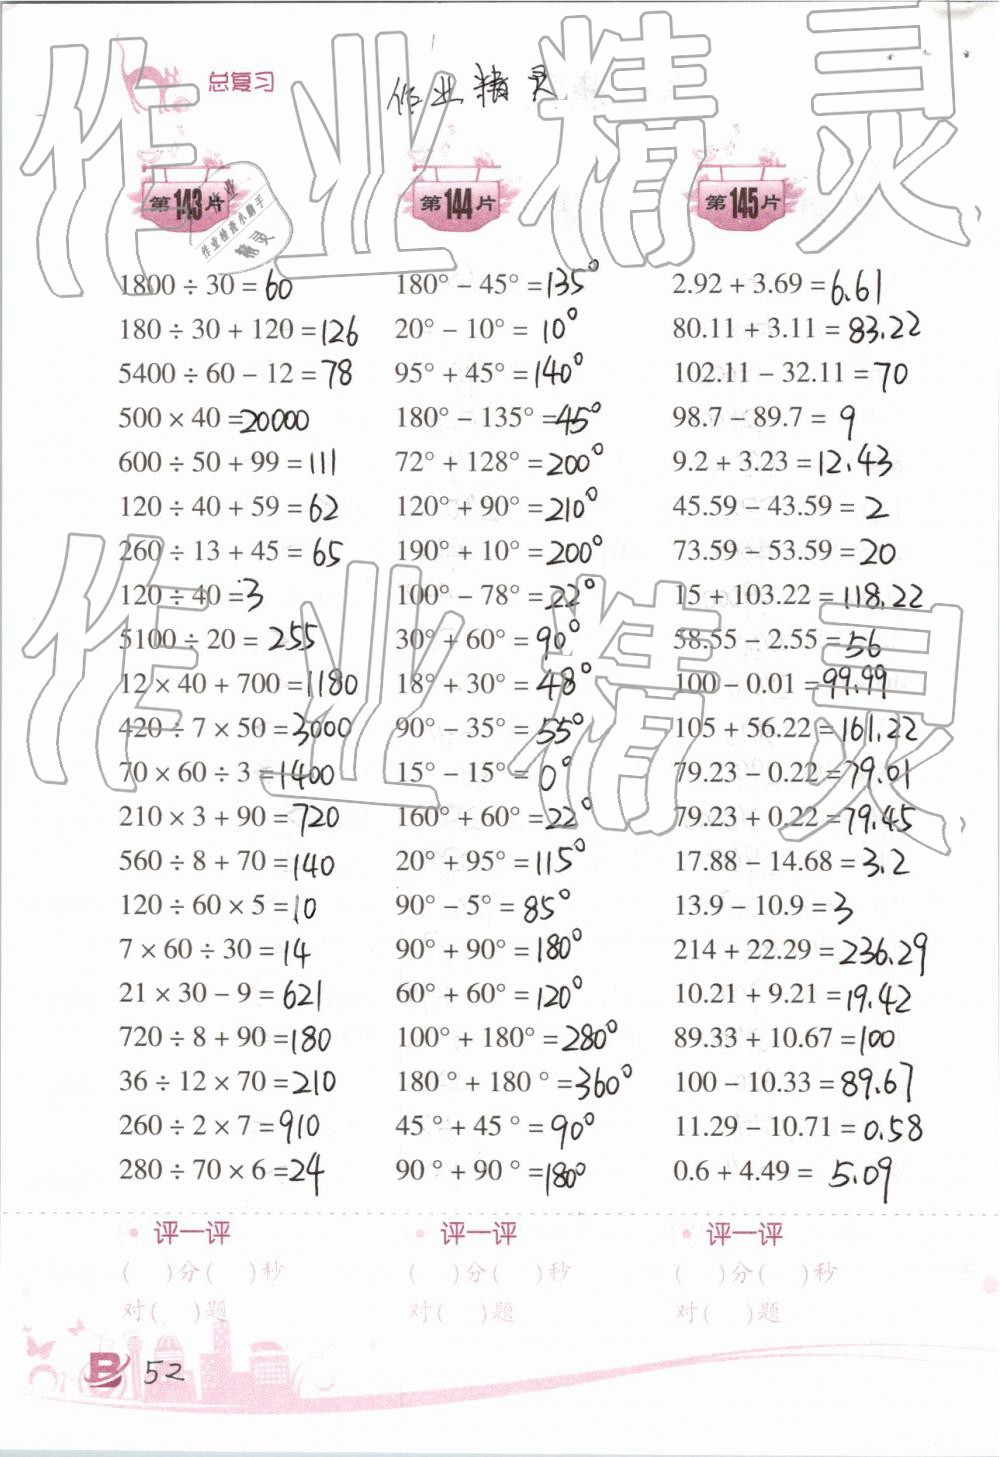 总复习
作业精灵
作业精灵
第143片
作业检查小助手
精灵
1800 ÷ 30 = 60
180 ÷ 30 + 120 = 126
5400 ÷ 60 − 12 = 78
500 × 40 = 20000
600 ÷ 50 + 99 = 111
120 ÷ 40 + 59 = 62
260 ÷ 13 + 45 = 65
120 ÷ 40 = 3
5100 ÷ 20 = 255
12 × 40 + 700 = 1180
420 ÷ 7 × 50 = 3000
70 × 60 ÷ 3 = 1400
210 × 3 + 90 = 720
560 ÷ 8 + 70 = 140
120 ÷ 60 × 5 = 10
7 × 60 ÷ 30 = 14
21 × 30 − 9 = 621
720 ÷ 8 + 90 = 180
36 ÷ 12 × 70 = 210
260 ÷ 2 × 7 = 910
280 ÷ 70 × 6 = 24
评一评
( )分( )秒
对( )题
第144片
180° − 45° = 135°
20° − 10° = 10°
95° + 45° = 140°
180° − 135° = 45°
72° + 128° = 200°
120° + 90° = 210°
190° + 10° = 200°
100° − 78° = 22°
30° + 60° = 90°
18° + 30° = 48°
90° − 35° = 55°
15° − 15° = 0°
160° + 60° = 22°
20° + 95° = 115°
90° − 5° = 85°
90° + 90° = 180°
60° + 60° = 120°
100° + 180° = 280°
180 ° + 180 ° = 360°
45 ° + 45 ° = 90°
90 ° + 90 ° = 180°
评一评
( )分( )秒
对( )题
第145片
2.92 + 3.69 = 6.61
80.11 + 3.11 = 83.22
102.11 − 32.11 = 70
98.7 − 89.7 = 9
9.2 + 3.23 = 12.43
45.59 − 43.59 = 2
73.59 − 53.59 = 20
15 + 103.22 = 118.22
58.55 − 2.55 = 56
100 − 0.01 = 99.99
105 + 56.22 = 161.22
79.23 − 0.22 = 79.01
79.23 + 0.22 = 79.45
17.88 − 14.68 = 3.2
13.9 − 10.9 = 3
214 + 22.29 = 236.29
10.21 + 9.21 = 19.42
89.33 + 10.67 = 100
100 − 10.33 = 89.67
11.29 − 10.71 = 0.58
0.6 + 4.49 = 5.09
评一评
( )分( )秒
对( )题
作业精灵
B 52